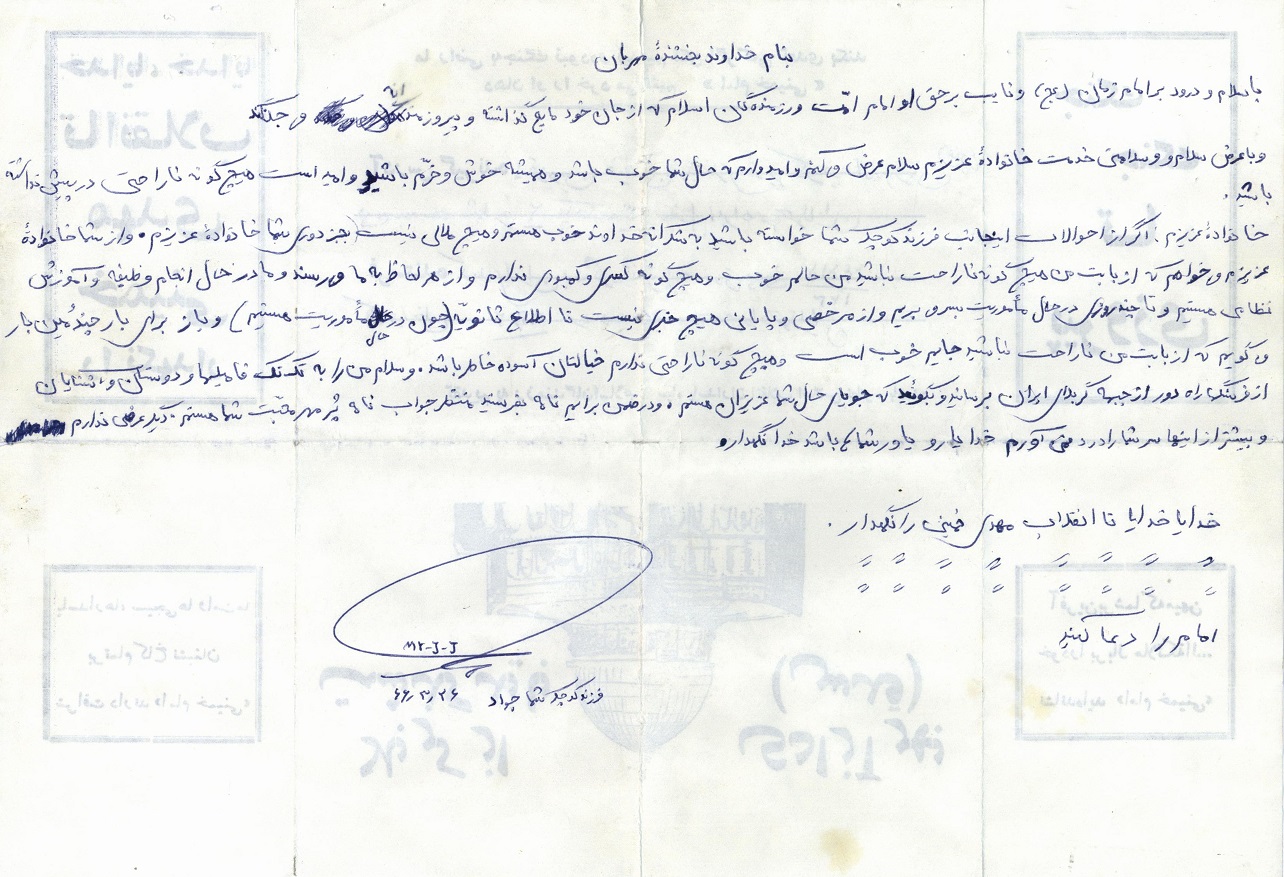 بنام خداوند بخشندهٔ مهربان
باسلام و درود بر امام زمان (عج) و نایب برحق او امام امّت و رزمنده گان اسلام که از جان خود مایع گذاشته و پیروزمندانه می جنگند
و با عرض سلام و سلامتی خدمت خانوادهٔ عزیزم سلام عرض می کنم و امیدوارم که حال شما خوب باشد و همیشه خوش و خرّم باشید و امید است هیچ گونه ناراحتی در پیش نداشته
باشید.
خانوادهٔ عزیزم: اگر از احوالات اینجانب فرزند کوچک شما خواسته باشید به شکرانه خداوند خوب هستم و هیچ ملالی نیست (بجز دوری شما خانوادهٔ عزیزم. و از شما خانوادهٔ
عزیزم می خواهم که از بابت من هیچ گونه ناراحت نباشید من حالم خوب و هیچ گونه کسری و کمبودی ندارم و از هر لحاظ به ما می رسند و ما در حال انجام وظیفه و آموزش
نظامی هستیم و تا چند روزی در حال مأموریت بسر می بریم و از مرخصی و پایانی هیچ خبری نیست تا اطلاع ثانویّه (چون در حال مأموریت هستیم) و باز برای بار چندُمین بار
می گویم که از بابت من ناراحت نباشید جایم خوب است و هیچ گونه ناراحتی ندارم خیالتان آسوده خاطر باشد. و سلام من را به تک تک فامیلها و دوستان و آشنایان
از فرسنگها راه دور از جبهه کربلای ایران برسانید و بگوئید که جویای حال شما عزیزان هستم. و در ضمن برایم نامه بفرستید منتظر جواب نامه پُر مهر محبّت شما هستم. دیگر عرضی ندارم
و بیشتر از اینها سر شما را درد نمی آورم خدا یارو یاور شما باشد خدا نگهدار
خدایا خدایا تا انقلاب مهدی خمینی را نگهدار.
〃 〃 〃 〃 〃 〃 〃
〃 〃 〃 〃 〃 〃 〃
امام را دعا کنید
فرزند کوچک شما جواد ۶۶/۳/۲۶